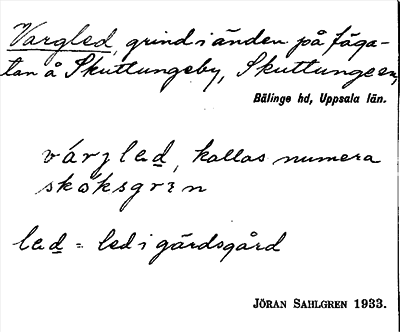 Vargled, grind i änden på fäga-
tan å Skuttungeby, Skuttunge sn,
Bälinge hd, Uppsala län.
várgled, kallas numera
skóksgrın
led = led i gärdsgård
JÖRAN SAHLGREN 1933.